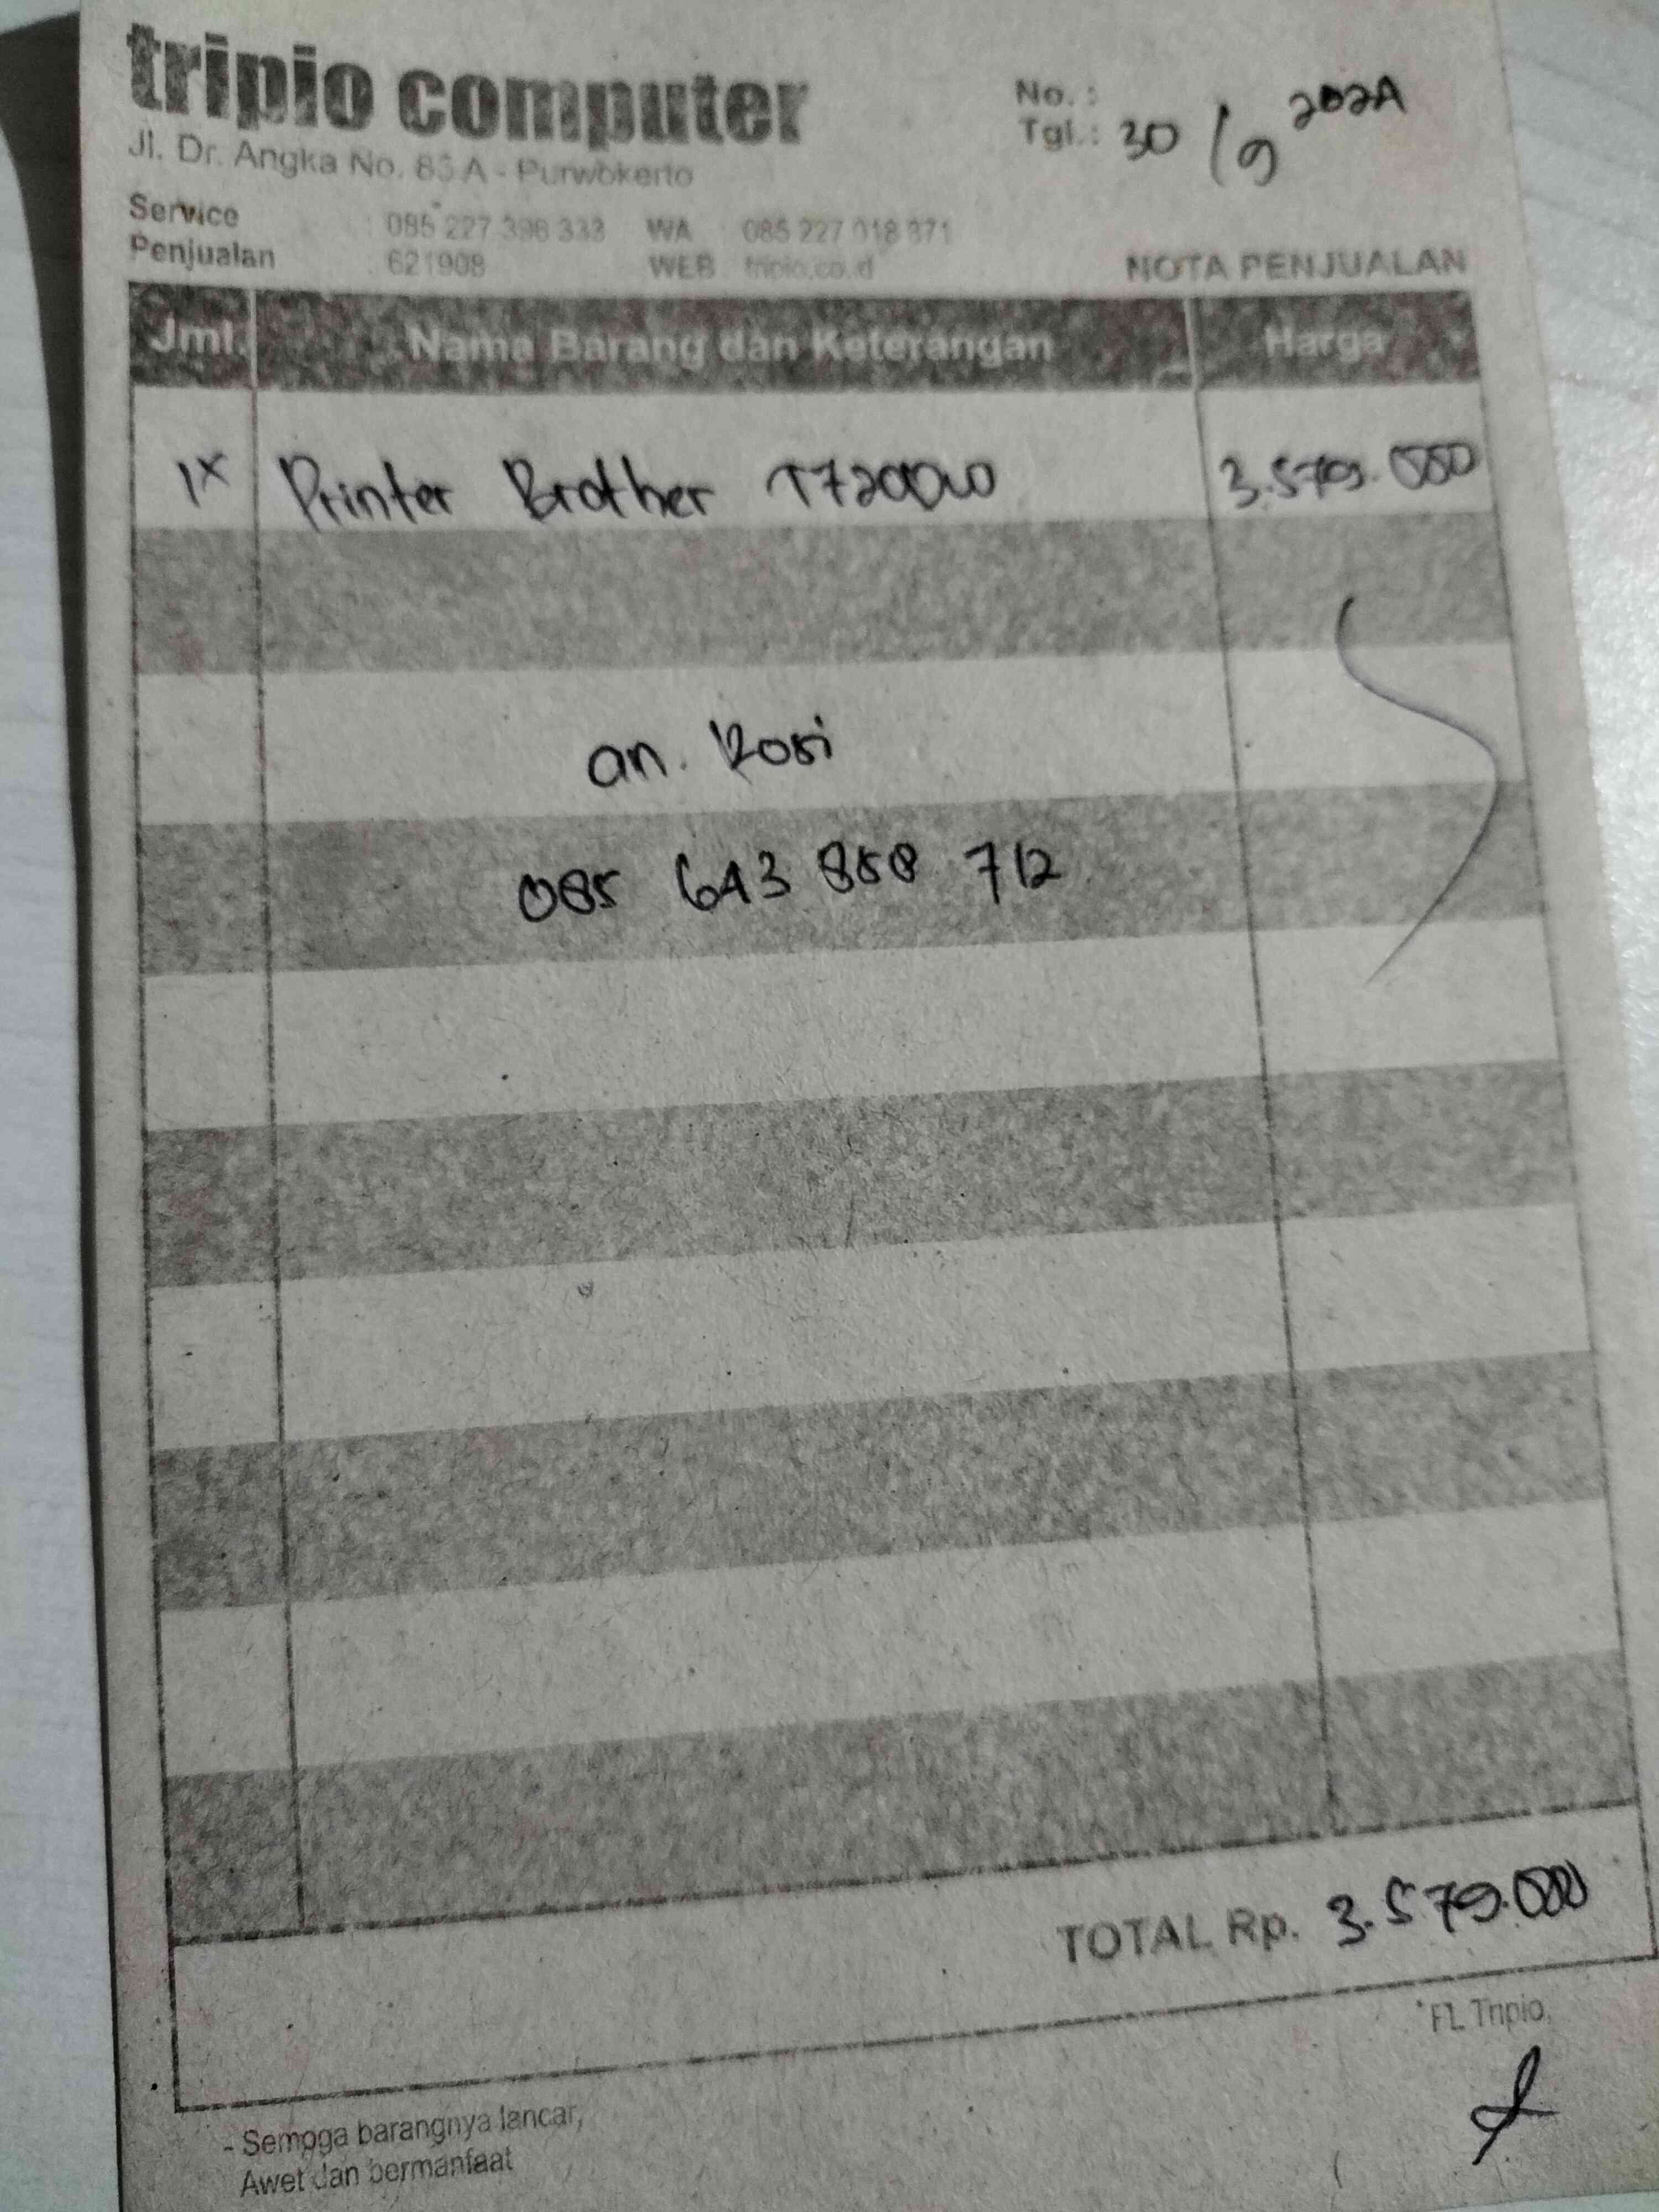 tripio computer
No. :
Jl. Dr. Angka No. 83 A - Purwokerto
Tgl. : 30 / 9 2024
Service : 085 227 398 333 WA : 085 227 018 871
Penjualan : 621908 WEB : tripio.co.id
NOTA PENJUALAN
Jml. Nama Barang dan Keterangan Harga
1x Printer Brother T720DW 3.579.000
an. Rosi
085 643 858 712
TOTAL Rp. 3.579.000
FL Tripio,
- Semoga barangnya lancar,
Awet dan bermanfaat